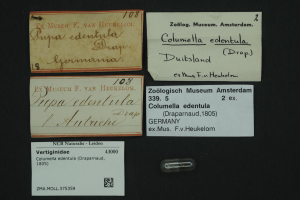 Ex Museo F. van Heukelom. 108
Pupa edentula
Drap.
Germania.
18
2
Zoölog. Museum. Amsterdam.
Columella edentula
(Drap)
Duitsland
ex Mus F. v Heukelom
108
Ex Museo F. van Heukelom.
Pupa edentula
Drap
Autriche
Zoölogisch Museum Amsterdam
339. 5 2 ex.
Columella edentula
(Draparnaud, 1805)
GERMANY
ex. Mus. F.v.Heukelom
NCB Naturalis - Leiden
Vertiginidae 43980
Columella edentula (Draparnaud,
1805)
ZMA.MOLL.375359